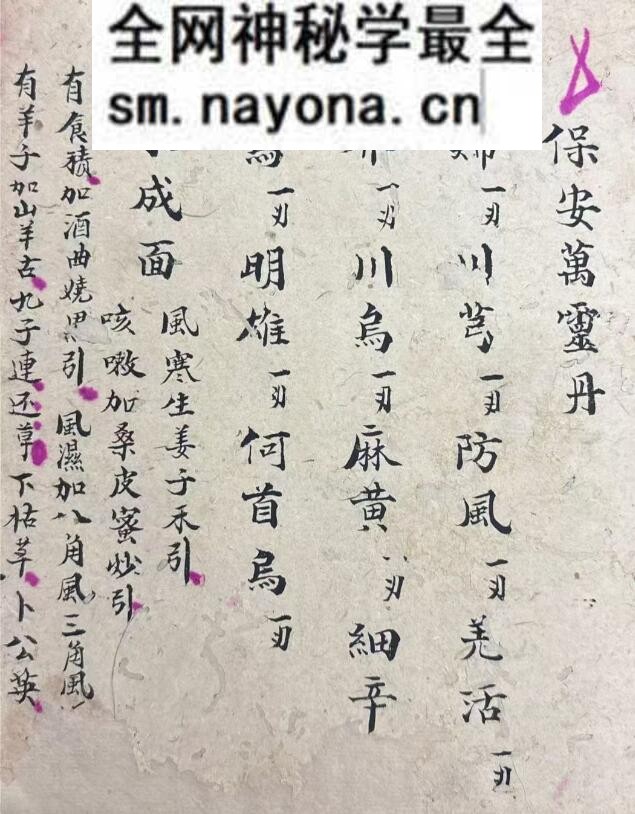 全网神秘学最全
sm.nayona.cn
保安萬靈丹
一刃 川芎 一刃 防風 一刃 羌活 一刃
一刃 川烏 一刃 麻黃 八刃 細辛
一刃 明雄 一刃 何首烏 一刃
成面
風寒生姜子禾引
咳嗽加桑皮蜜炒引
有食積加酒曲燒黑引 風濕加八角風三角風
有羊子加山羊古九子連还草下枯草卜公英